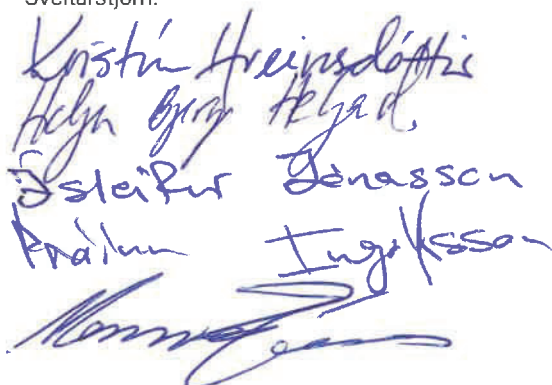 Sveitarstjórn.
Kristín Hreinsdóttir
Helga Björg Helgad.
Ísleifur Jónasson
Þráinn Ingólfsson